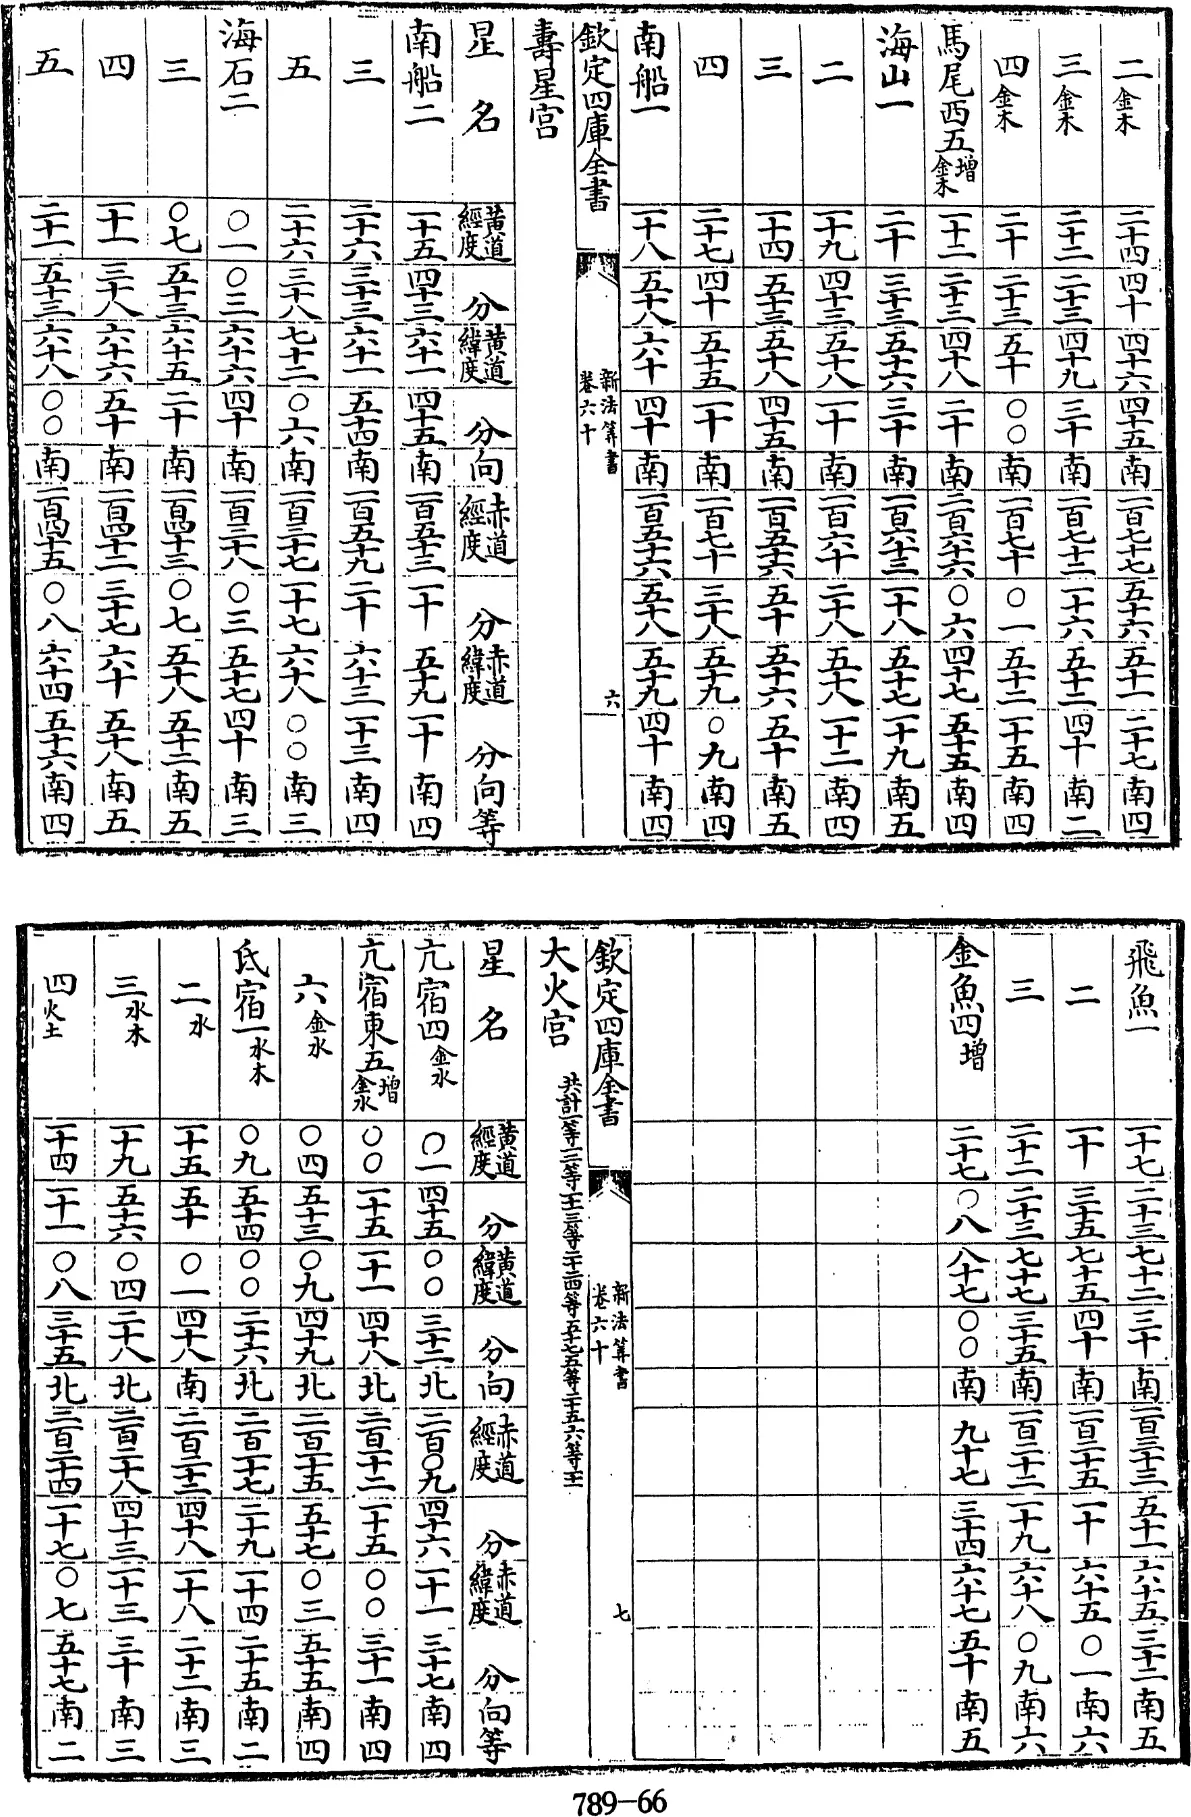 二金木 二十四 四十 四十六 四十五 南 一百七十七 五十六 五十一 二十七 南 四
三金木 二十二 二十三 四十九 三十 南 一百七十二 一十六 五十二 四十 南 二
四金木 二十 二十三 五十 〇〇 南 一百七十 〇一 五十二 一十五 南 四
馬尾西五增金木 一十二 二十三 四十八 二十 南 一百六十六 〇六 四十七 五十五 南 四
海山一 二十 三十三 五十六 三十 南 一百六十三 一十八 五十七 一十九 南 五
二 一十九 四十三 五十八 一十 南 一百六十 二十八 五十八 一十二 南 四
三 一十四 五十三 五十八 四十五 南 一百五十六 五十 五十六 五十 南 五
四 二十七 四十 五十五 一十 南 一百七十 三十八 五十九 〇九 南 四
南船一 一十八 五十八 六十 四十 南 一百五十六 五十八 五十九 四十 南 四
欽定四庫全書 新法算書 卷六十 六
壽星宫
星名 黃道經度 分 黃道緯度 分 向 赤道經度 分 赤道緯度 分 向 等
南船二 一十五 四十三 六十一 四十五 南 一百五十三 一十 五十九 一十 南 四
三 二十六 三十三 六十一 五十四 南 一百五十九 二十 六十三 一十三 南 四
五 二十六 三十八 七十二 〇六 南 一百三十七 一十七 六十八 〇〇 南 三
海石二 〇一 〇三 六十六 四十 南 一百三十八 〇三 五十七 四十 南 三
三 〇七 五十三 六十五 二十 南 一百四十三 〇七 五十八 五十二 南 五
四 一十一 三十八 六十六 五十 南 一百四十二 三十七 六十 五十八 南 五
五 二十一 五十三 六十八 〇〇 南 一百四十五 〇八 六十四 五十六 南 四
飛魚一 一十七 二十三 七十二 三十 南 一百三十三 五十一 六十五 三十二 南 五
二 一十 三十五 七十五 四十 南 一百二十五 一十 六十五 〇一 南 六
三 二十二 二十三 七十七 三十五 南 一百二十二 一十九 六十八 〇九 南 六
金魚四增 二十七 〇八 八十七 〇〇 南 九十七 三十四 六十七 五十 南 五
欽定四庫全書 新法算書 卷六十 七
大火宫 共計一等一二等三三等二十四等五十七五等二十五六等十一
星名 黃道經度 分 黃道緯度 分 向 赤道經度 分 赤道緯度 分 向 等
亢宿四金水 〇一 四十五 〇〇 三十二 北 二百〇九 四十六 一十一 三十七 南 四
亢宿東五增金水 〇〇 一十五 一十一 四十八 北 二百一十二 一十五 〇〇 三十一 南 四
六金水 〇四 五十三 〇九 四十九 北 二百一十五 五十七 〇三 五十五 南 四
氐宿一水木 〇九 五十四 〇〇 二十六 北 二百一十七 二十九 一十四 二十五 南 二
二水 一十五 五十 〇一 四十八 南 二百二十三 四十八 一十八 二十二 南 三
三水木 一十九 五十六 〇四 二十八 北 二百二十八 四十三 一十三 三十 南 三
四火土 一十四 二十一 〇八 三十五 北 二百二十四 一十七 〇七 五十七 南 二
789—66